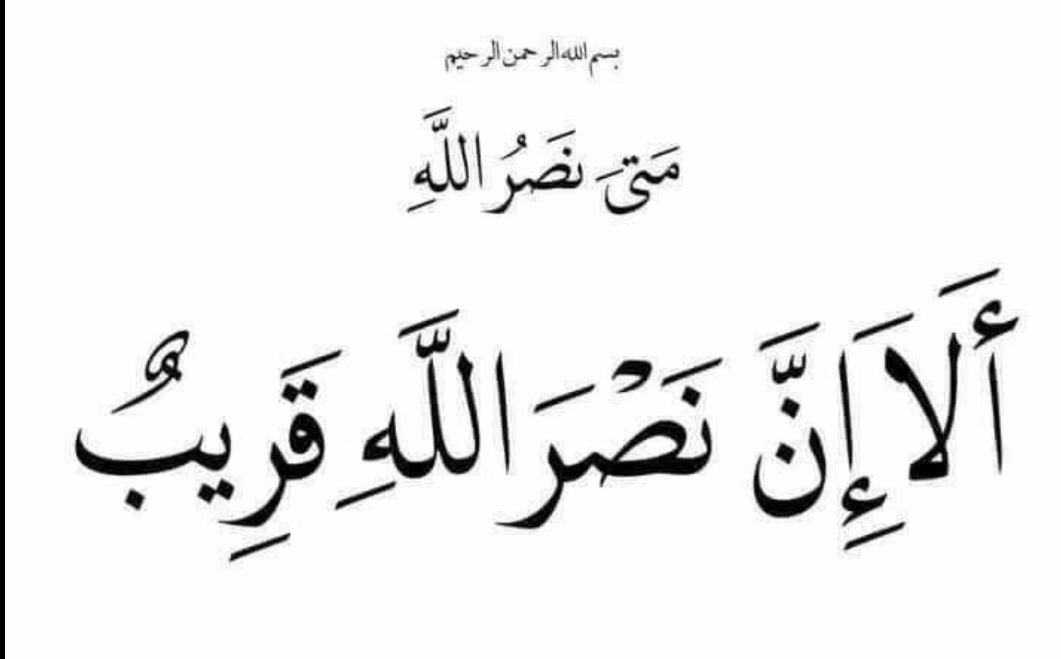 بسم الله الرحمن الرحيم
مَتىَ نَصُرُ اللَّهِ
أَلاَ إِنَّ نَصْرَ اللَّهِ قَرِيبٌ